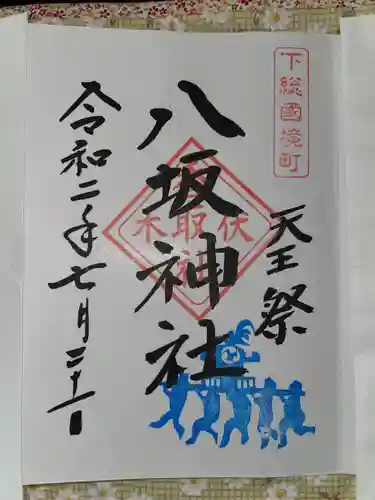 下総國境町
天王祭
八坂神社
伏
取
木
令和二年七月二十一日